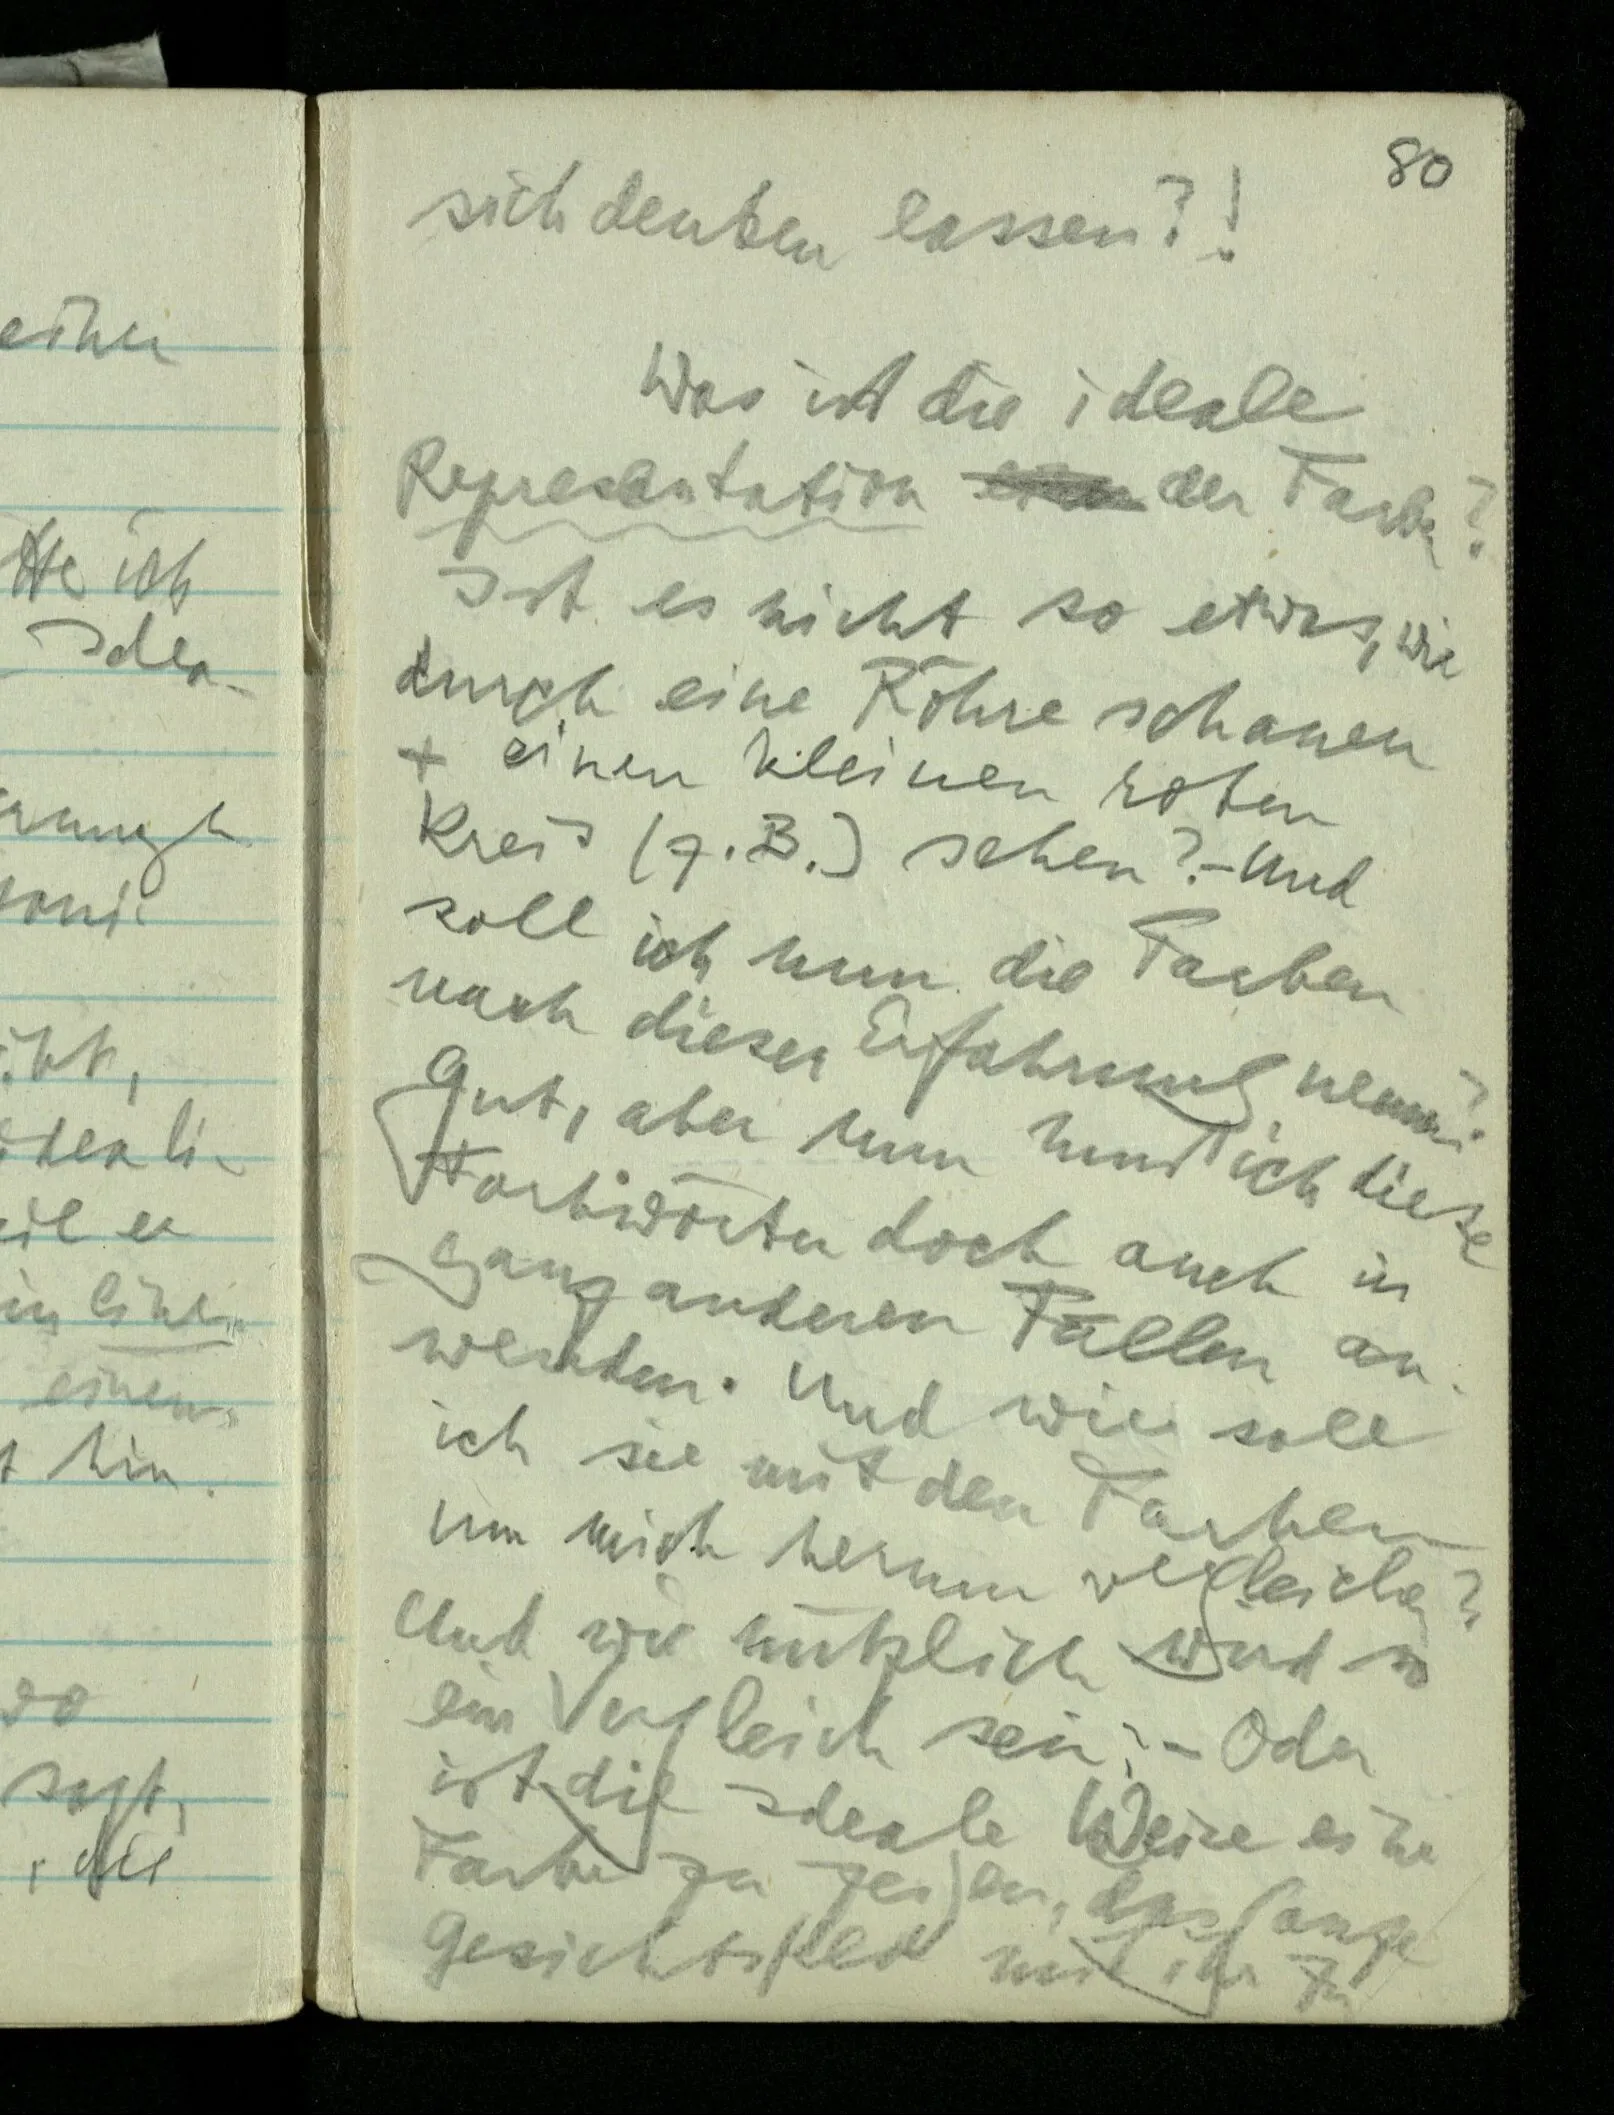 einen
tte ich
Idea-
ibt,
ideali-
eil er
in einen
t hin.
so
sagt,
, die
80
sich denken lassen?!
Was ist die ideale
Representation der Farbe?
Ist es nicht so etwas, wie
durch eine Röhre schauen
+ einen kleinen roten
Kreis (z.B.) sehen? – Und
soll ich nun die Farben
nach dieser Erfahrung nennen?
Gut, aber nun muß ich diese
Farbwörter doch auch in
ganz anderen Fällen an-
wenden. Und wie soll
ich sie mit den Farben
um mich herum vergleichen?
Und wie nützlich wird so
ein Vergleich sein? – Oder
ist die ideale Weise eine
Farbe zu zeigen, das ganze
Gesichtsfeld mit ihr zu